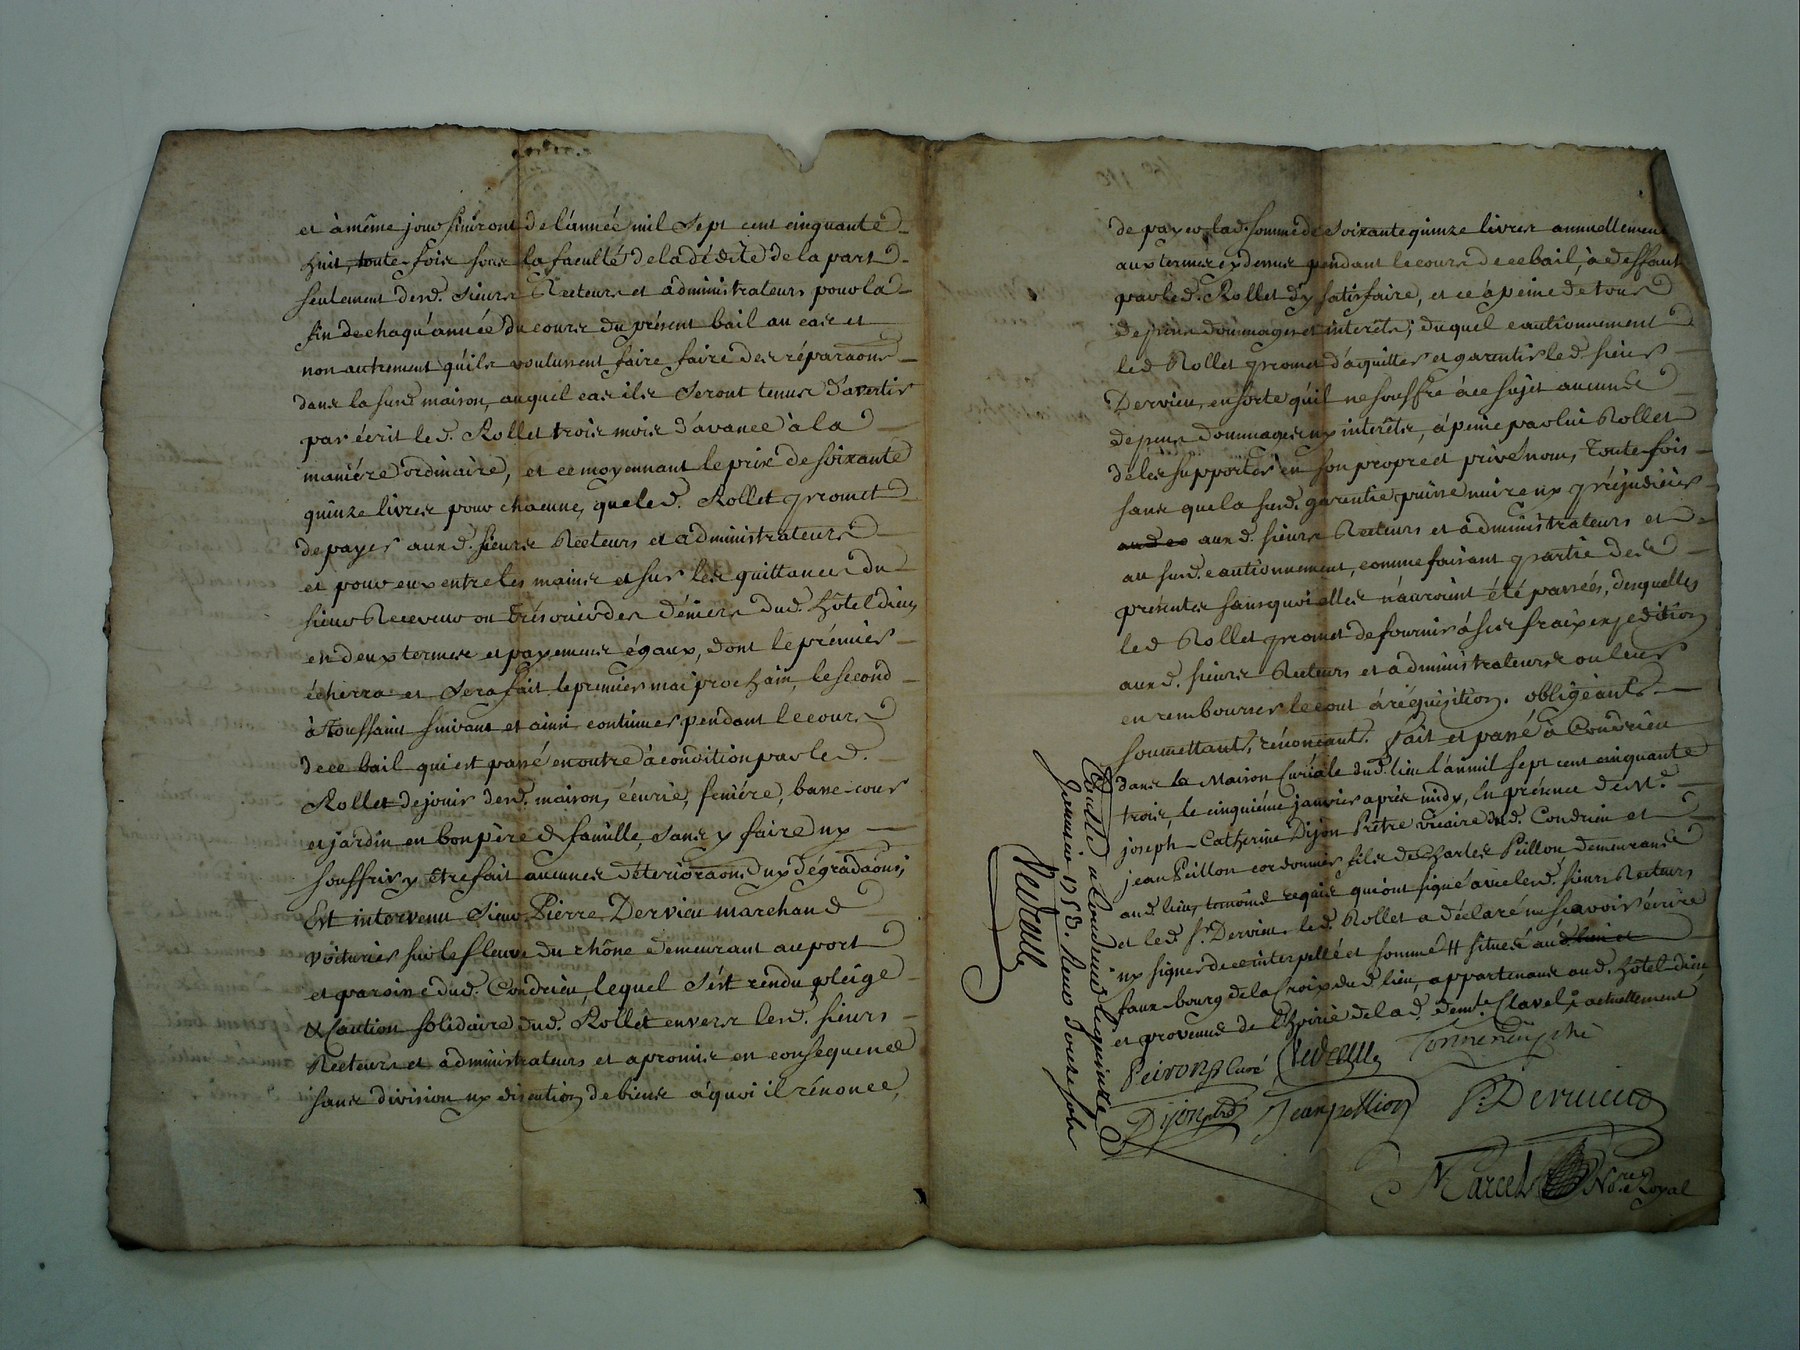 et à même jour finiront de l'année mil sept cent cinquante
huit, toute fois sous la faculté de la dédite de la part
seulement desd. sieurs Recteurs et administrateurs pour la
fin de chaqu'année du cours du présent bail au cas et
non autrement qu'ils voulussent faire faire des réparaons
dans la susd. maison, auquel cas ils seront tenus d'avertir
par écrit led. Rollet trois mois d'avance à la
maniére ordinaire, et ce moyennant le prix de soixante
quinze livres pour chacune, que led. Rollet promet
de payer auxd. sieurs Recteurs et administrateurs
et pour eux entre les mains et sur les quittances du
sieur Receveur ou trésorier des déniers dud. hôtel dieu
en deux termes et payements égaux, dont le prémier
écherra et sera fait le premier mai prochain, le second
à toussaint suivant et ainsi continuer pendant le cours
de ce bail qui est passé en outre à condition par led.
Rollet de jouir desd. maison, écurie, feniére, basse-cour
et jardin en bon père de famille, sans y faire ny
souffrir y etre fait aucunes déterioraons ny dégradaons;
Est intervenu sieur Pierre Dervieu marchand
voiturier sur le fleuve du rhône demeurant au port
et paroisse dud. Condrieu, lequel s'ést rendu pleige
& Caution solidaire dud. Rollet envers lesd. sieurs
Recteurs et administrateurs et a promis en conséquence
sans division ny discution de biens à quoi il rénonce,
de payer lad. somme de soixante quinze livres annuellement
aux termes cy dessus pendant le cours de ce bail, à deffaut
par led. Rollet d'y satisfaire, et ce à peine de tous
depens dommages et interêts; duquel cautionnement
led. Rollet promet d'aquitter et garentir led. sieur
Dervieu, en sorte qu'il ne souffre à ce sujet aucuns
depens dommages ny interêts, à peine par lui Rollet
de les supporter en son propre et privé nom, toute fois
sans que la susd. garentie puisse nuire ny préjudicier
auxd. sieurs Recteurs et administrateurs et
au susd. cautionnement, comme faisant partie des
présentes sans quoi elles n'auroient été passées, desquelles
led. Rollet promet de fournir à ses fraix expedition
auxd. sieurs Recteurs et administrateurs ou leur
en rembourser le cout à réquisition. obligeants
soumettants, rénonçants. fait et passé à Condrieu
dans la Maison Curiale dud. lieu l'an mil sept cent cinquante
trois, le cinquiéme janvier après midy, En présence de M.e
joseph-Catherine Dijon Prêtre vicaire dud. Condrieu et
jean Peillon cordonnier fils de Charles Peillon demeurans
aud. lieu, temoins requis qui ont signé avec lesd. sieurs Recteurs
et led. s.r Dervieu led. Rollet a déclaré ne sçavoir écrire
ny signer de ce interpellé et sommé # située au
faux-bourg de la Croix dud. lieu, appartenans aud. hôtel-dieu
et provenus de l'hoirie de lad. dem.le Clavel, actuellement
Peiron Curé
Dijon ptre Jean peillion P: Dervieux
Marcel No.re Royal
Controllé à Condrieu le quinze
Janvier 1753. Reçu Douze sols